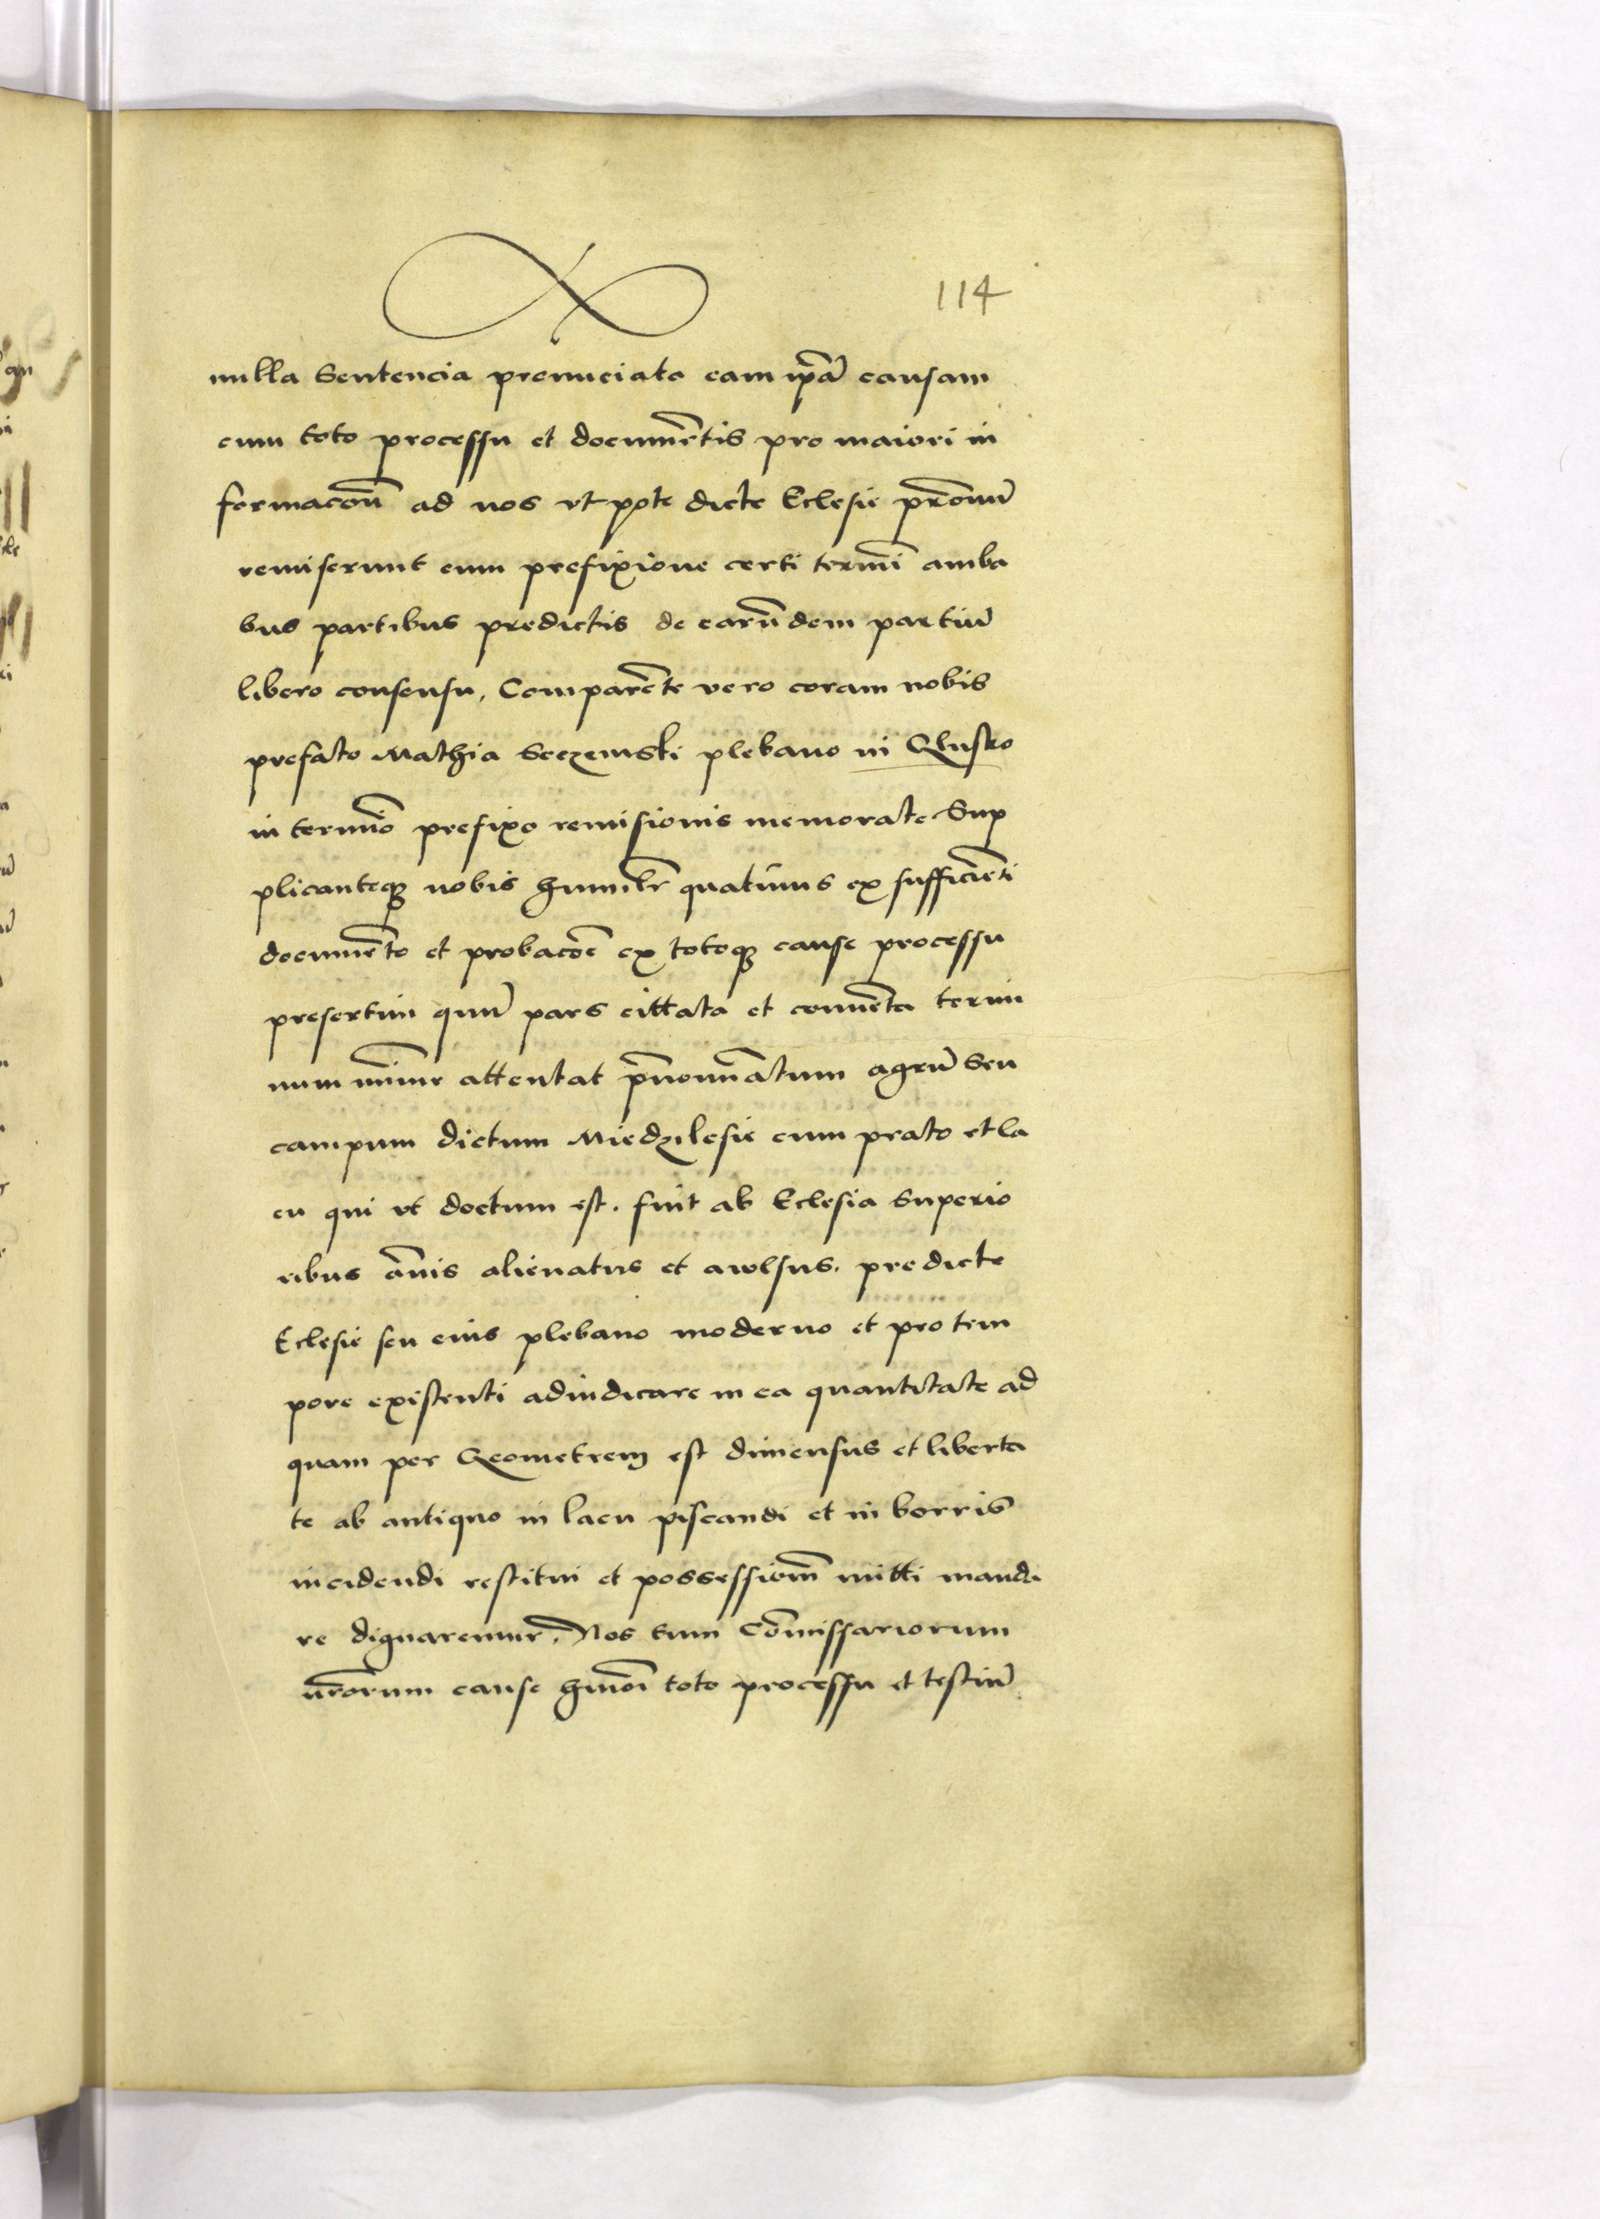 114
nulla Sentencia pronuciata eam ip̄ā causam
cum toto processu et documētis pro maiori in
formacōn̄ ad nos vt pote dicte Eclesie pr̄onū
remiserunt cum prefixione certi term̄i amba
bus partibus predictis de earūdem partiū
libero consensu, Comparēte vero coram nobis
prefato Mathia Seczemski plebano in Qlusko
in termīo prefixo remisionis memorate Sup
plicanteqȝ nobis humilr̄ quatinus ex sufficiēti
documēto et probacōe ex totoqȝ cause processu
presertim quū pars cittata et conuēta termi
num mīme attentat p̄nomīatum agrū Seu
campum dictum Miedzilesie cum prato et la
cu qui vt doctum est. fuit ab Eclesia Superio
ribus āuis alienatus et awlsus. predicte
Eclesie seu eius plebano moderno et pro tem
pore existenti adiudicare in ea quantitate ad
quam per Geometrem est dimensus et liberta
te ab antiquo in lacu piscandi et in borris
incidendi restitui et possessionē mitti manda
re dignaremur. Nos tum Cōmissariorum
nr̄orum cause hmōi toto processu et testiū